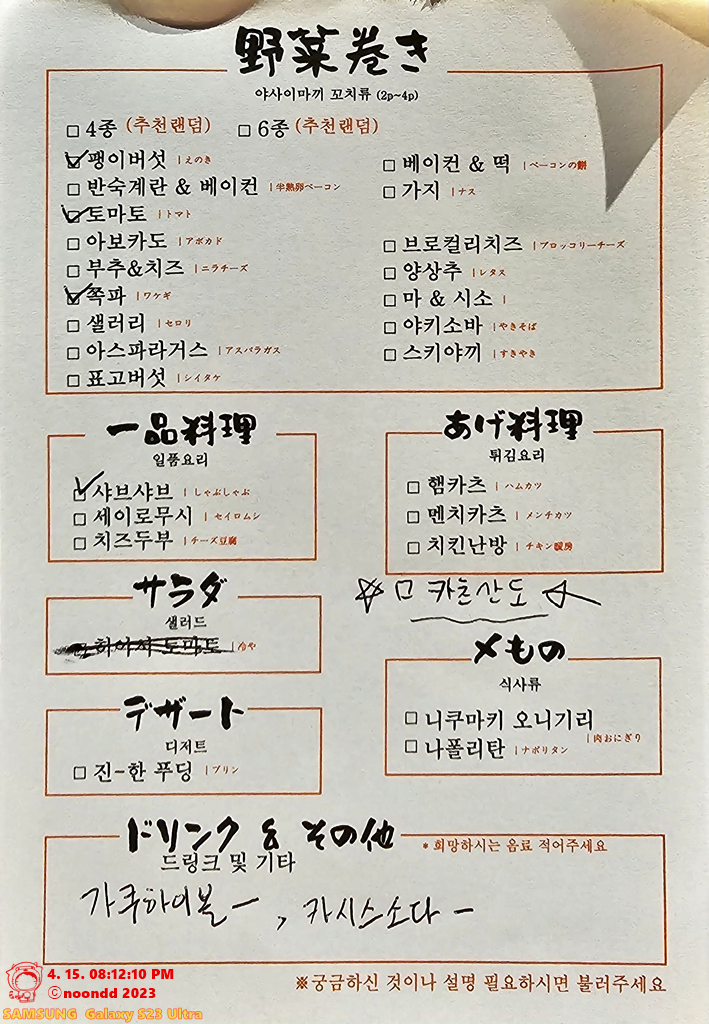 野菜巻き
야사이마끼 꼬치류 (2p~4p)
□ 4종 (추천랜덤) □ 6종 (추천랜덤)
☑ 팽이버섯 | えのき
□ 반숙계란 & 베이컨 | 半熟卵ベーコン
☑ 토마토 | トマト
□ 아보카도 | アボカド
□ 부추&치즈 | ニラチーズ
☑ 쪽파 | ワケギ
□ 샐러리 | セロリ
□ 아스파라거스 | アスパラガス
□ 표고버섯 | シイタケ
□ 베이컨 & 떡 | ベーコンの餅
□ 가지 | ナス
□ 브로컬리치즈 | ブロッコリーチーズ
□ 양상추 | レタス
□ 마 & 시소 |
□ 야키소바 | やきそば
□ 스키야끼 | すきやき
一品料理
일품요리
☑ 샤브샤브 | しゃぶしゃぶ
□ 세이로무시 | セイロムシ
□ 치즈두부 | チーズ豆腐
あげ料理
튀김요리
□ 햄카츠 | ハムカツ
□ 멘치카츠 | メンチカツ
□ 치킨난방 | チキン暖房
☆ □ 카츠산도 ☆
サラダ
샐러드
□ 히야시 토마토 | 冷や
〆もの
식사류
□ 니쿠마키 오니기리 | 肉おにぎり
□ 나폴리탄 | ナポリタン
デザート
디저트
□ 진-한 푸딩 | プリン
ドリンク & その他
드링크 및 기타
* 희망하시는 음료 적어주세요
가쿠하이볼 一 , 카시스소다 一
※궁금하신 것이나 설명 필요하시면 불러주세요
4. 15. 08:12:10 PM
ⓒnoondd 2023
SAMSUNG Galaxy S23 Ultra